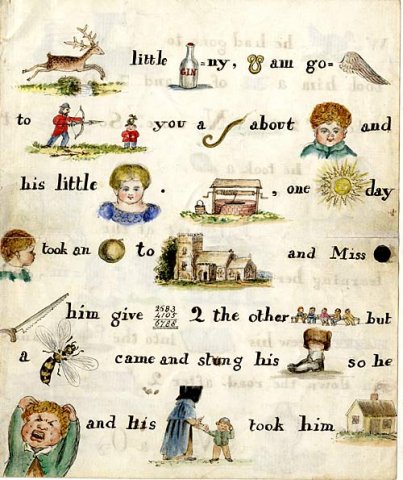 little GIN =ny, am go=
to you a about and
his little . , one day
took an to and Miss
him give 2583 4105 6728 2 the other but
a came and stung his so he
and his took him